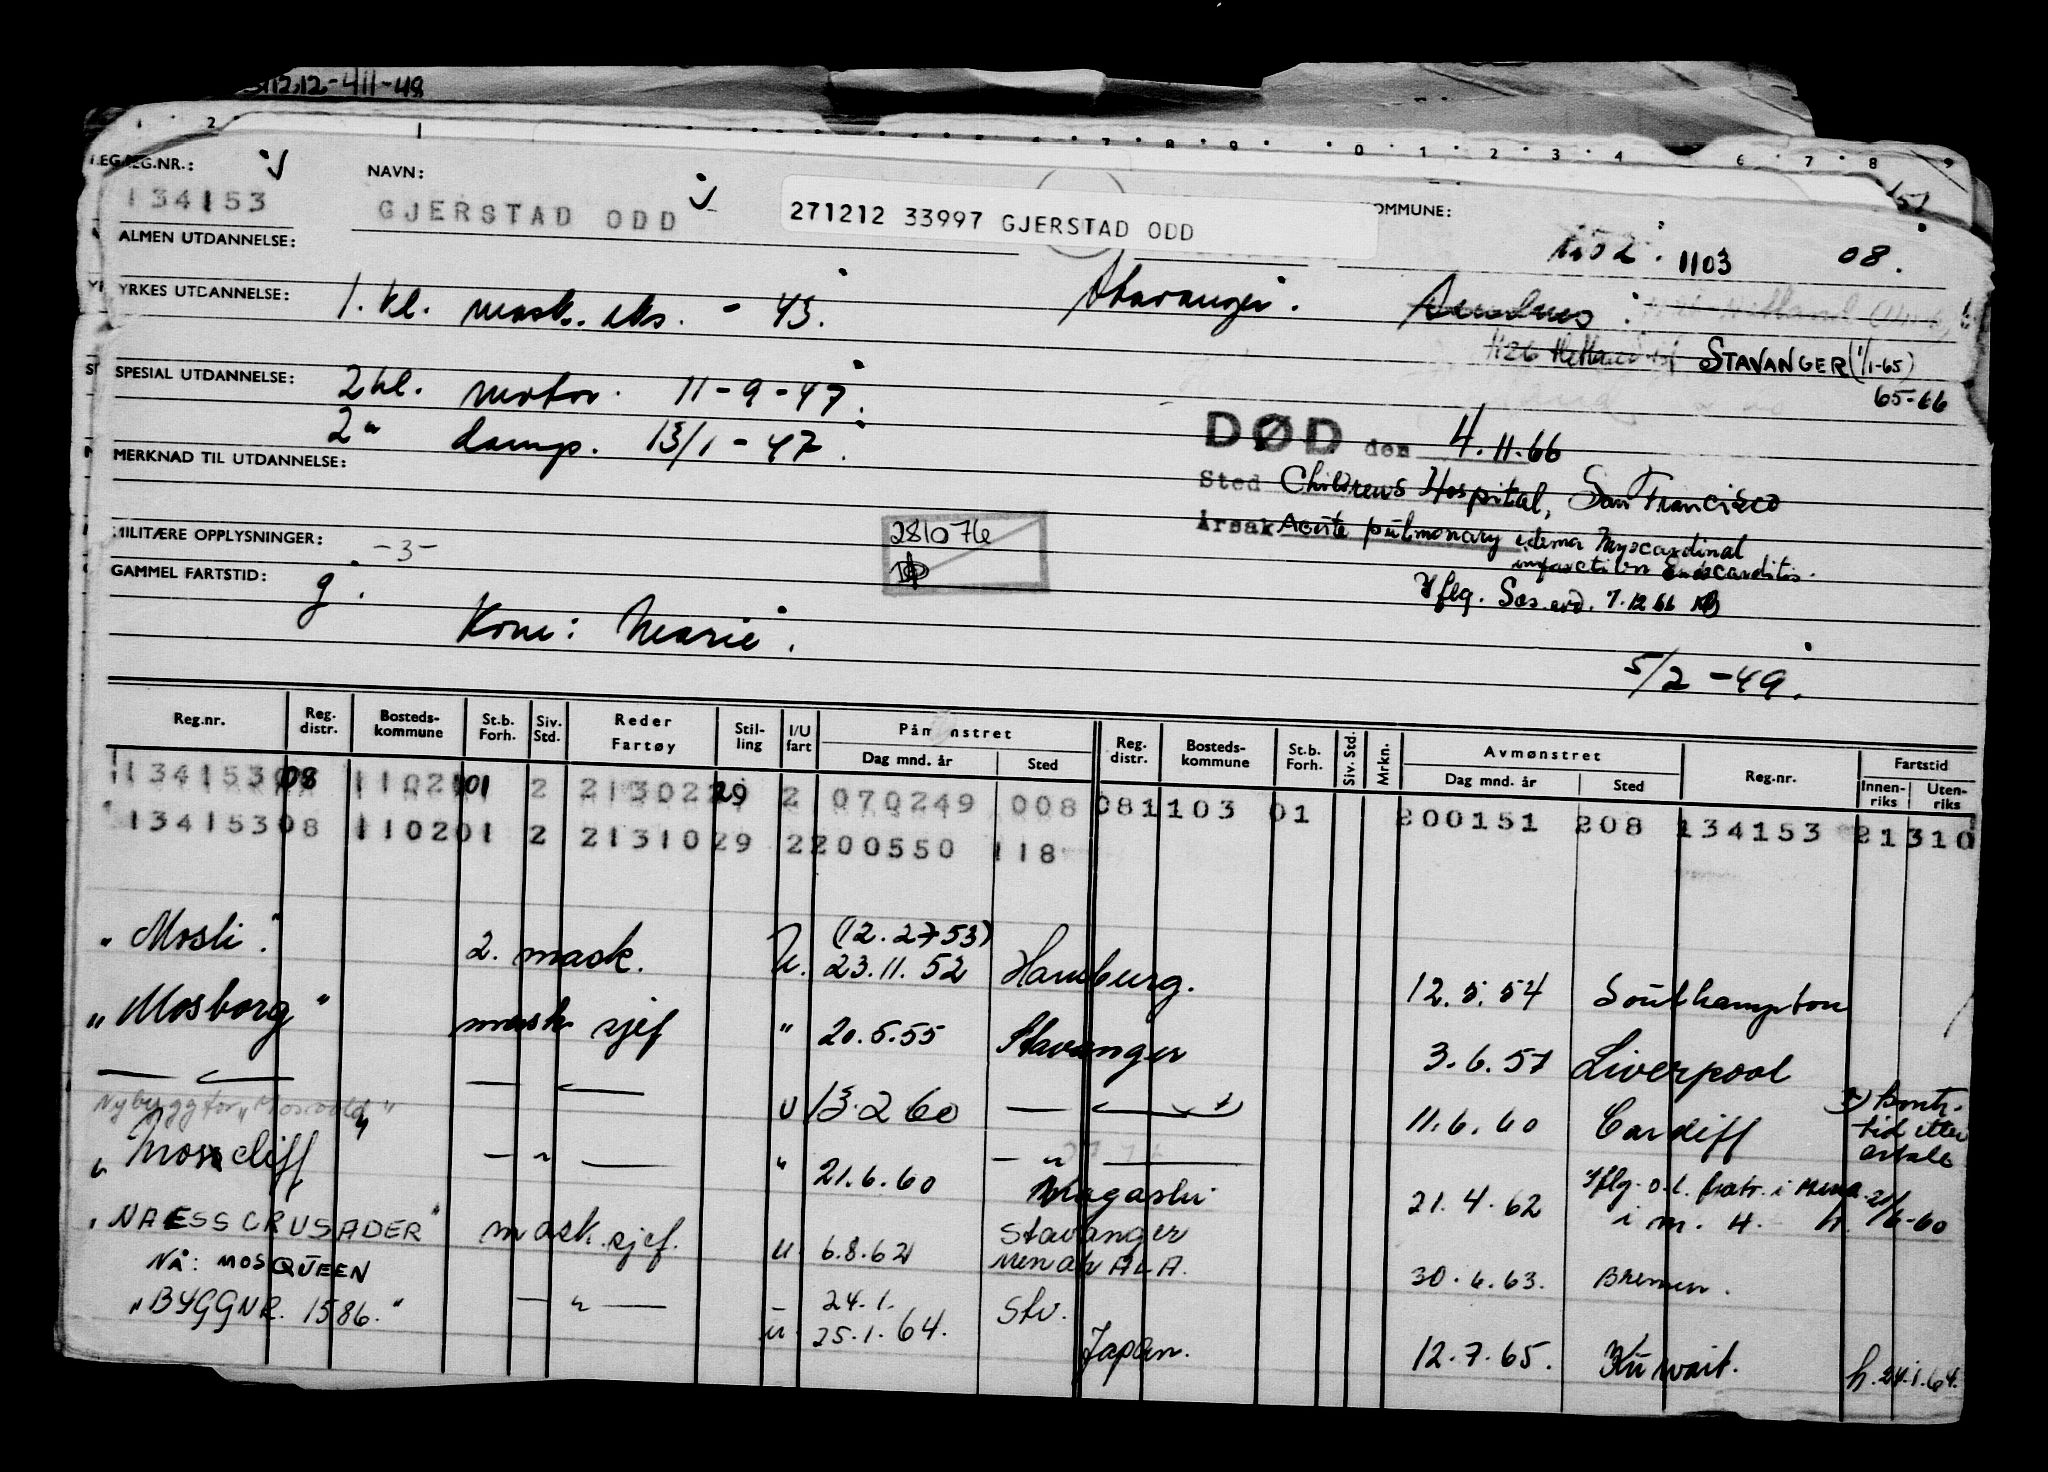 1212-411-48
REG.NR.:
134153
NAVN:
GJERSTAD ODD
271212 33997 GJERSTAD ODD
KOMMUNE:
1103 08.
ALMEN UTDANNELSE:
YRKES UTDANNELSE: 1. kl. mask. eks. - 43. Stavanger.
STAVANGER (1/1-65)
65-66
SPESIAL UTDANNELSE: 2 kl. motor. 11-9-47.
2 " damp. 13/1-47.
MERKNAD TIL UTDANNELSE:
DØD den 4.11.66
Sted Childrens Hospital, San Francisco
Årsak Acute pulmonary edema Myocardinal
infarction Endocarditis.
Iflg. Søs.avd. 7.12.66
MILITÆRE OPPLYSNINGER: -3-
281076
GAMMEL FARTSTID: g.
Kone: Marie.
5/2-49.
Reg.nr. Reg. distr. Bosteds-kommune St.b. Forh. Siv. Std. Reder Fartøy Stil-ling I/U fart Påmønstret Dag mnd. år Sted Reg. distr. Bosteds-kommune St.b. Forh. Siv. Std. Mrkn. Avmønstret Dag mnd. år Sted Reg.nr. Fartstid Innen-riks Uten-riks
134153 08 1102 01 2 21302 29 2 070249 008 08 1103 01 200151 208 134153 21310
134153 08 1102 01 2 21310 29 2 200550 118
"Mosli". 2. mask. U. (12.2.53) 23.11.52 Hamburg. 12.5.54 Southampton
"Mosborg" mask sjef " 20.5.55 Stavanger 3.6.57 Liverpool
— " — — " — U 13.2.60 — " — x) 11.6.60 Cardiff x) Kontr.
tid etter
avtale
Nybygg for "Mosvold"
"Moscliff — " — " 21.6.60 — " — Nagasaki 21.4.62
"NAESS CRUSADER" mask.sjef. u. 6.8.62 Stavanger
MENA ALA. 30.6.63. Bremen.
NÅ: MOSQUEEN
"BYGGNR. 1586." — " — u. 24.1.
25.1.64. Stv.
Japan. 12.7.65. Kuwait. h. 24.1.64.